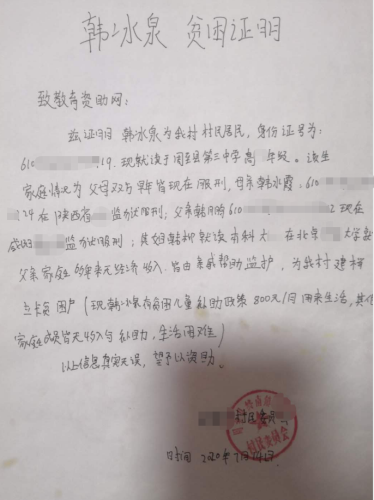 韩冰泉 贫困证明
致教育资助网：
兹证明 韩冰泉为我村村民居民，身份证号为：
610 19. 现就读于周至县第三中学高 年级。该生
家庭情况为 父母双方 皆现在服刑，母亲韩水霞，610
29在陕西省 监狱服刑；父亲韩 610 2 现在
监狱服刑；其姐韩 就读本科大 在北京 大学就
父亲家庭 年来无经济收入 皆由亲戚帮助监护，为我村建档
立卡贫困户（现韩冰泉有贫困儿童补助政策 800元/月用来生活，其他
家庭成员皆无收入与补助，生活困难）
以上信息真实无误，望予以资助。
村民委员
村民委员会
时间 2020年7月14日